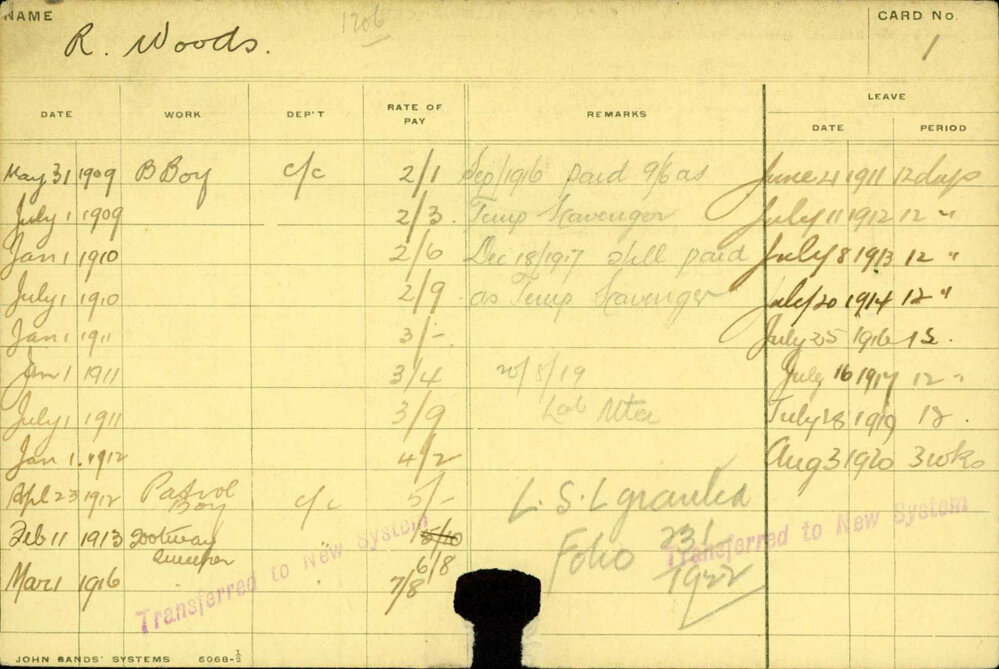 NAME R. Woods. 1206 CARD No. 1
LEAVE
DATE WORK DEP'T RATE OF PAY REMARKS DATE PERIOD
May 31 1909 B Boy c/c 2/1 Sep/1916 paid 9/6 as June 21 1911 12 days
July 1 1909 2/3 Temp Scavenger July 11 1912 12 "
Jan 1 1910 2/6 Dec 18/1917 still paid July 8 1913 12 "
July 1 1910 2/9 as Temp Scavenger July 20 1914 12 "
Jan 1 1911 3/- July 25 1916 12.
Jan 1 1911 3/4 20/8/19 July 16 1917 12 "
July 1 1911 3/9 Lab July 28 1919 12.
Jan 1. 1912 4/2 Aug 3 1920 3 wks
Apl 23 1912 Patrol Boy c/c 5/- L. S. L granted
Feb 11 1913 Footway Sweeper " 5/10 6/8 Folio 231
Mar 1 1916 7/8 1922
Transferred to New System
Transferred to New System
JOHN SANDS' SYSTEMS 5068-½